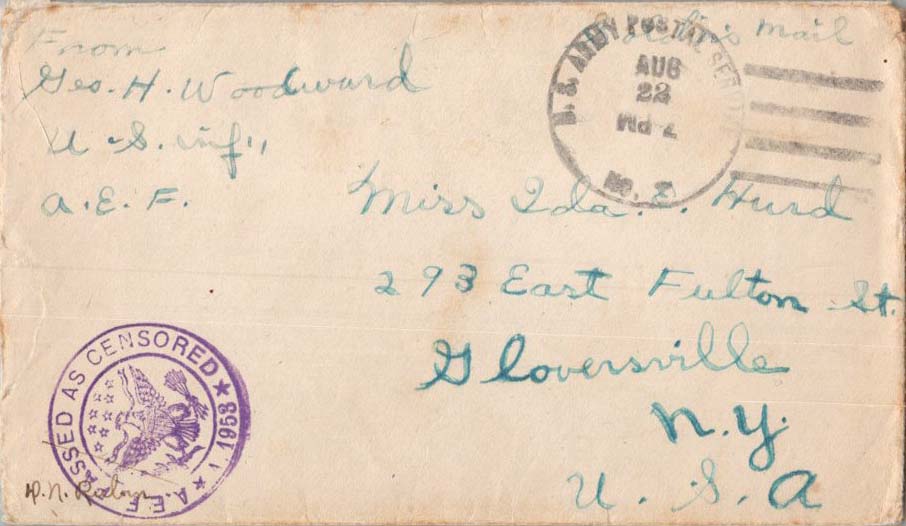 From
Geo. H. Woodward
U. S. inf,,
A. E. F.
Soldier's mail
U. S. ARMY POSTAL SERVICE
AUG
22
PM
No. 2
Miss Ida. E. Hurd
293 East Fulton St.
Gloversville
N.Y.
U. S. A
PASSED AS CENSORED ★ 1953 ★ A.E.F.